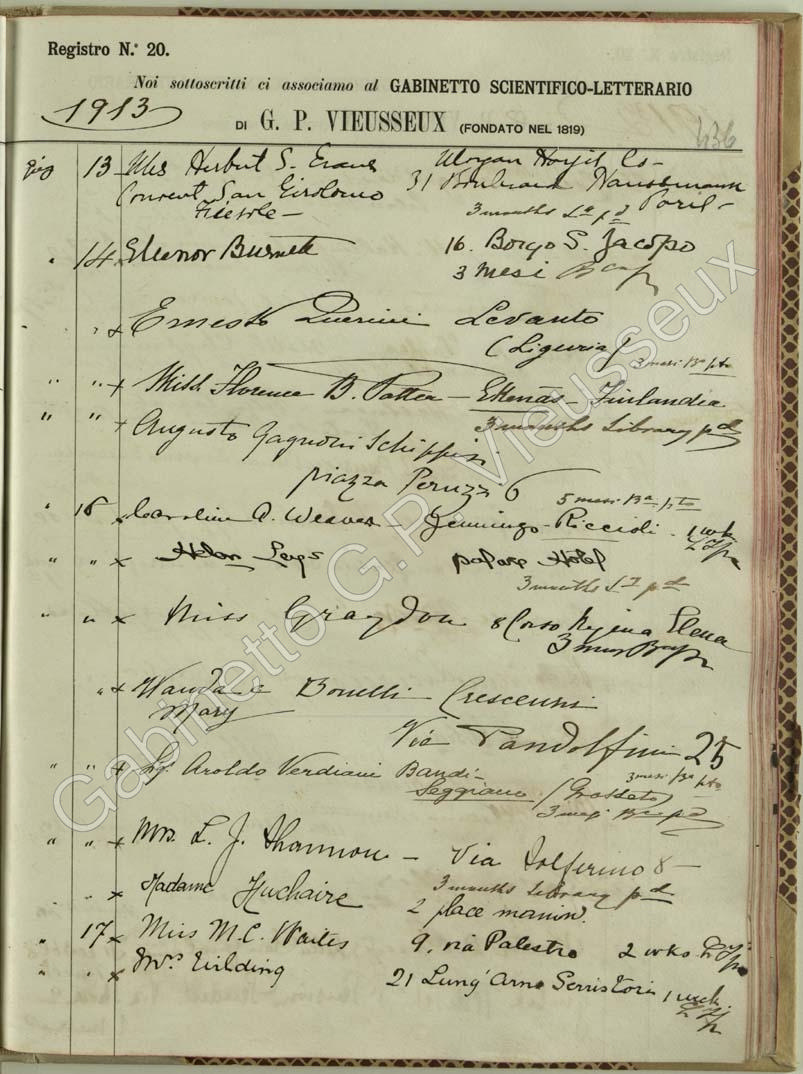 Registro N.º 20.
Noi sottoscritti ci associamo al GABINETTO SCIENTIFICO-LETTERARIO
1913
DI G. P. VIEUSSEUX (FONDATO NEL 1819)
436
13 Herbert S. Evans
Convent San Girolomo 31 Boulevard Haussmann
Fiesole - 3 months Paris -
14 Eleanor Burnett 16. Borgo S. Jacopo
3 mesi
Ernesto Querini Levanto
(Liguria) 3 mesi
" " + Miss Florence B. - Ekenäs - Finlandia
" " + Augusto Gagnoni Schippisi 3 months Library pd
piazza Peruzzi 6 5 mesi
16 x Caroline A. Weaver - Riccioli - 1 wk
" " x Helen palace Hotel
3 months
" " x Miss Graydon 8 Corso Regina Elena
" + Wanda e Bonelli Crescenzi
Mary
Via Pandolfini 25
" " + Aroldo Verdiani Bandi - 3 mesi
Seggiano (Grosseto)
3 mesi
" " + Mrs L. J. Shannon - Via Solferino 8 -
3 months Library pd
x Madame Huchaire 2 place manin.
" 17 x Miss M. C. Waites 9, via Palestro 2 wks
x Mrs 21 Lung'Arno Serristori 1 week
Gabinetto G.P. Vieusseux